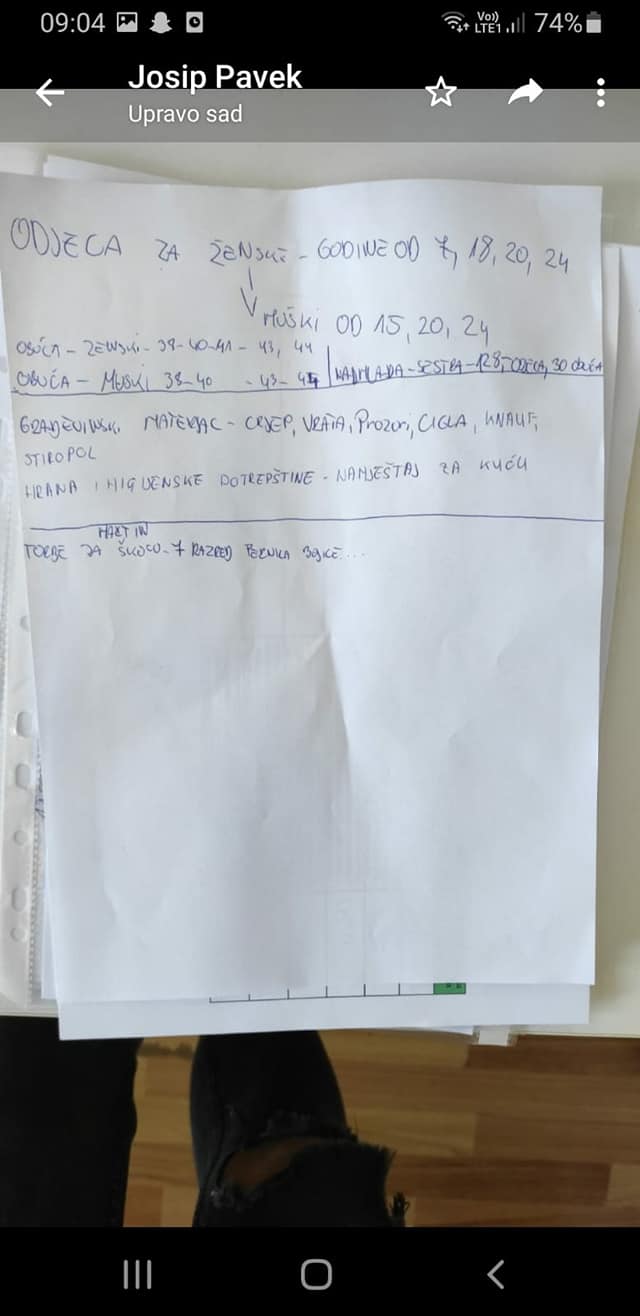 09:04 Vo)) LTE1 74%
Josip Pavek
Upravo sad
ODJECA ZA ŽENSKE - GODINE OD 7, 18, 20, 24
MUŠKI OD 15, 20, 24
OBUĆA - ŽENSKI - 39-40-41 - 43, 44
OBUĆA - MUSKI 38-40 - 43-45
NAJMLAĐA - SESTRA - 128, ODJEĆA, 30 OBUĆA
GRAĐEVINSKI MATERJAL - CRJEP, VRATA, Prozori, CIGLA, KNAUF,
STIROPOL
HRANA I HIGIJENSKE POTREPŠTINE - NAMJEŠTAJ ZA KUĆU
MARTIN
TORBE ZA ŠKOLU - 7 RAZRED PERNICA BOJICE...